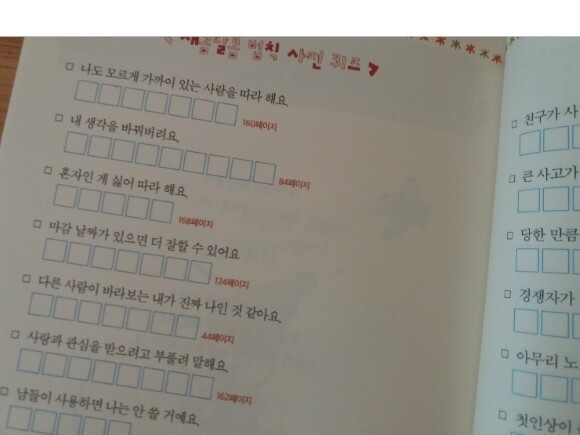 새콤달콤 법칙 사전 퀴즈 7
□ 나도 모르게 가까이 있는 사람을 따라 해요.
160페이지
□ 내 생각을 바꿔버려요.
84페이지
□ 혼자인 게 싫어 따라 해요.
168페이지
□ 마감 날짜가 있으면 더 잘할 수 있어요
124페이지
□ 다른 사람이 바라보는 내가 진짜 나인 것 같아요.
44페이지
□ 사랑과 관심을 받으려고 부풀려 말해요.
162페이지
□ 남들이 사용하면 나는 안 쓸 거예요.
□ 친구가 사
□ 큰 사고가
□ 당한 만큼
□ 경쟁자가
□ 아무리 노
□ 첫인상이